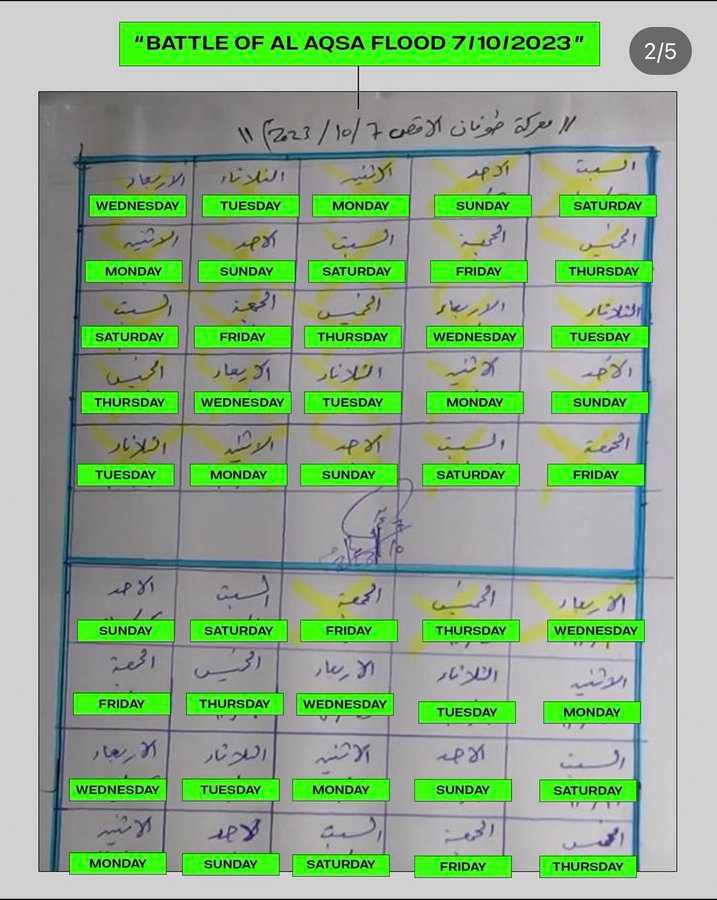 "BATTLE OF AL AQSA FLOOD 7/10/2023"
2/5
"معركة طوفان الاقصى 7/10/2023"
السبت الاحد الاثنين الثلاثاء الاربعاء
SATURDAY SUNDAY MONDAY TUESDAY WEDNESDAY
الخميس الجمعة السبت الاحد الاثنين
THURSDAY FRIDAY SATURDAY SUNDAY MONDAY
الثلاثاء الاربعاء الخميس الجمعة السبت
TUESDAY WEDNESDAY THURSDAY FRIDAY SATURDAY
الأحد الاثنين الثلاثاء الاربعاء الخميس
SUNDAY MONDAY TUESDAY WEDNESDAY THURSDAY
الجمعة السبت الاحد الاثنين الثلاثاء
FRIDAY SATURDAY SUNDAY MONDAY TUESDAY
الاربعاء الخميس الجمعة السبت الاحد
WEDNESDAY THURSDAY FRIDAY SATURDAY SUNDAY
الاثنين الثلاثاء الاربعاء الخميس الجمعة
MONDAY TUESDAY WEDNESDAY THURSDAY FRIDAY
السبت الاحد الاثنين الثلاثاء الاربعاء
SATURDAY SUNDAY MONDAY TUESDAY WEDNESDAY
الخميس الجمعة السبت الاحد الاثنين
THURSDAY FRIDAY SATURDAY SUNDAY MONDAY